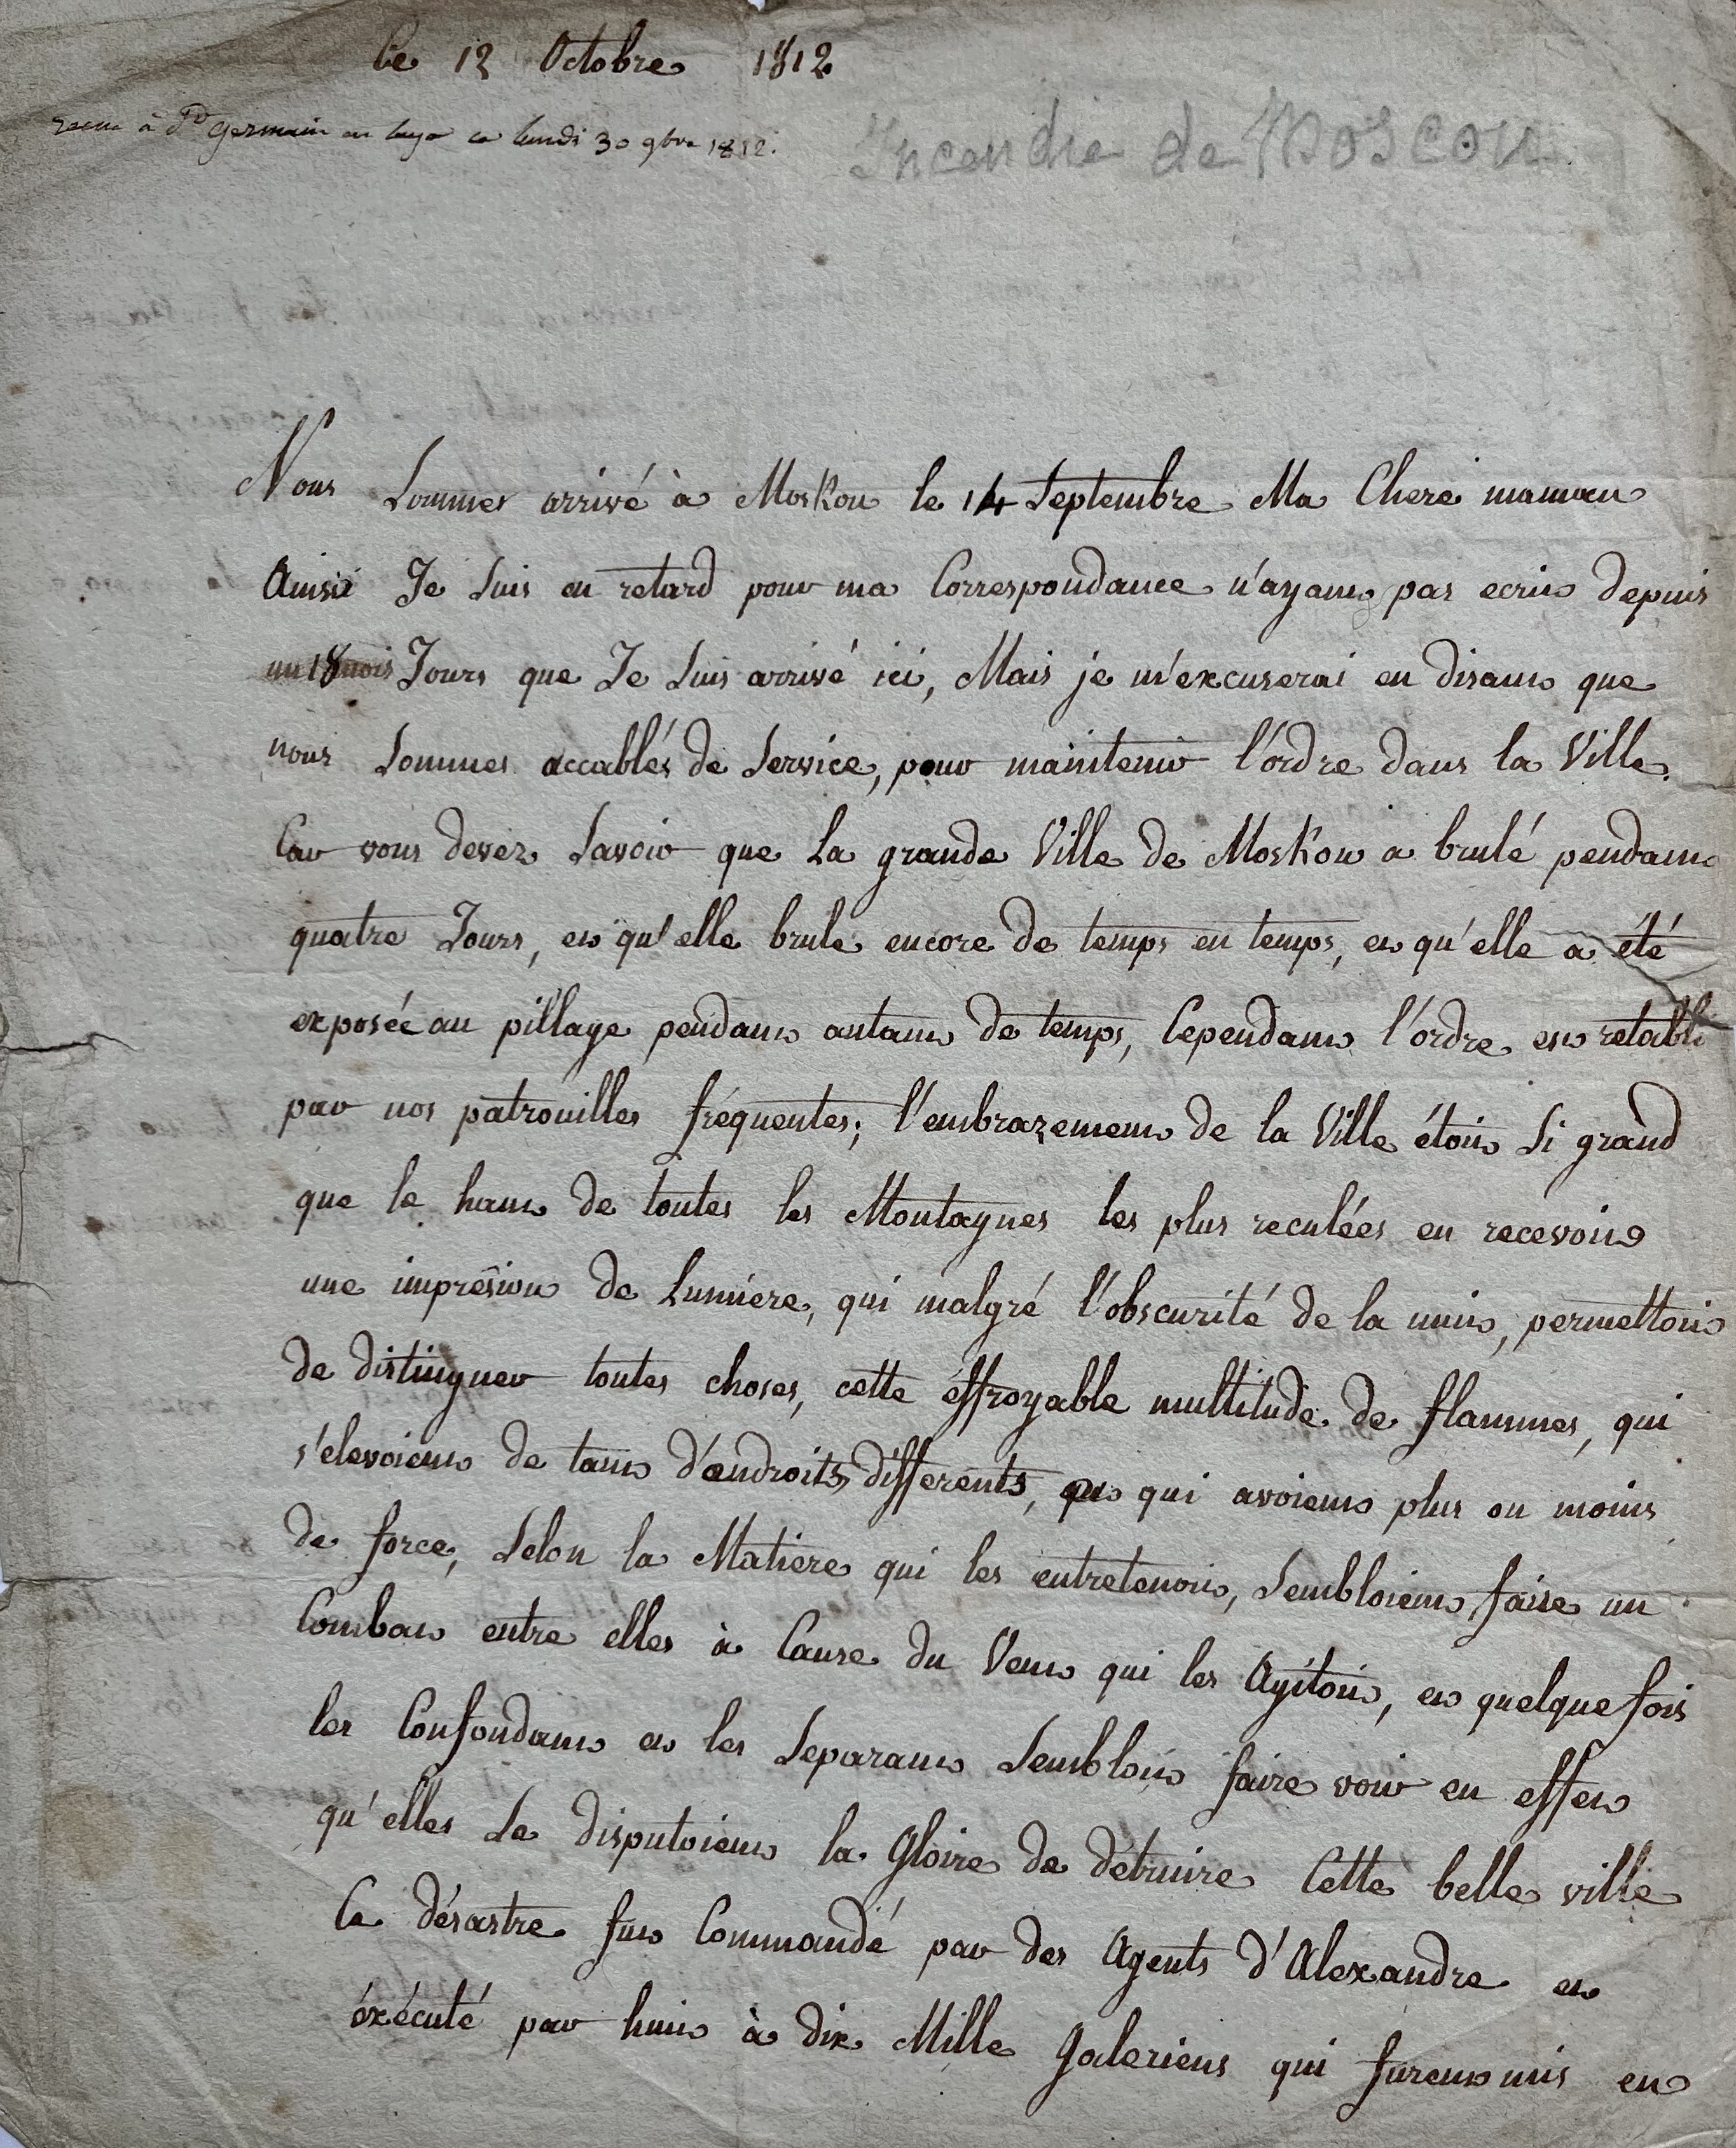 le 12 Octobre 1812
recue à St Germain en laye ce lundi 30 9bre 1812.
Incendie de Moscou
Nous Sommes arrivé à Moskou le 14 Septembre Ma Chere maman
Ainsi Je Suis en retard pour ma Correspondance n'ayant pas ecrit depuis
un 18 mois Jours que Je Suis arrivé ici, Mais je m'excuserai en disant que
nous Sommes accablés de Service, pour maintenir l'ordre dans la Ville.
Car vous devez Savoir que La grande Ville de Moskou a brulé pendant
quatre Jours, et qu'elle brule encore de temps en temps, et qu'elle a été
exposée au pillage pendant autant de temps, Cependant l'ordre est retabli
par nos patrouilles fréquentes; l'embrazement de la Ville étoit Si grand
que le haut de toutes les Montagnes les plus reculées en recevoit
une impression de Lumiere, qui malgré l'obscurité de la nuit, permettoit
de distinguer toutes choses, cette éffroyable multitude de flammes, qui
s'elevoient de tant d'endroits differents, et qui avoient plus ou moins
de force, Selon la Matiere qui les entretenoit, Sembloient faire un
Combat entre elles à Cause du Vent qui les Agitoit, et quelque fois
les Confondant et les Separant Sembloit faire voir en effet
qu'elles Se disputoient la Gloire de detruire Cette belle ville
Ce désastre fut Commandé par des Agents d'Alexandre et
éxécuté par huit à dix Mille Galeriens qui furent mis en